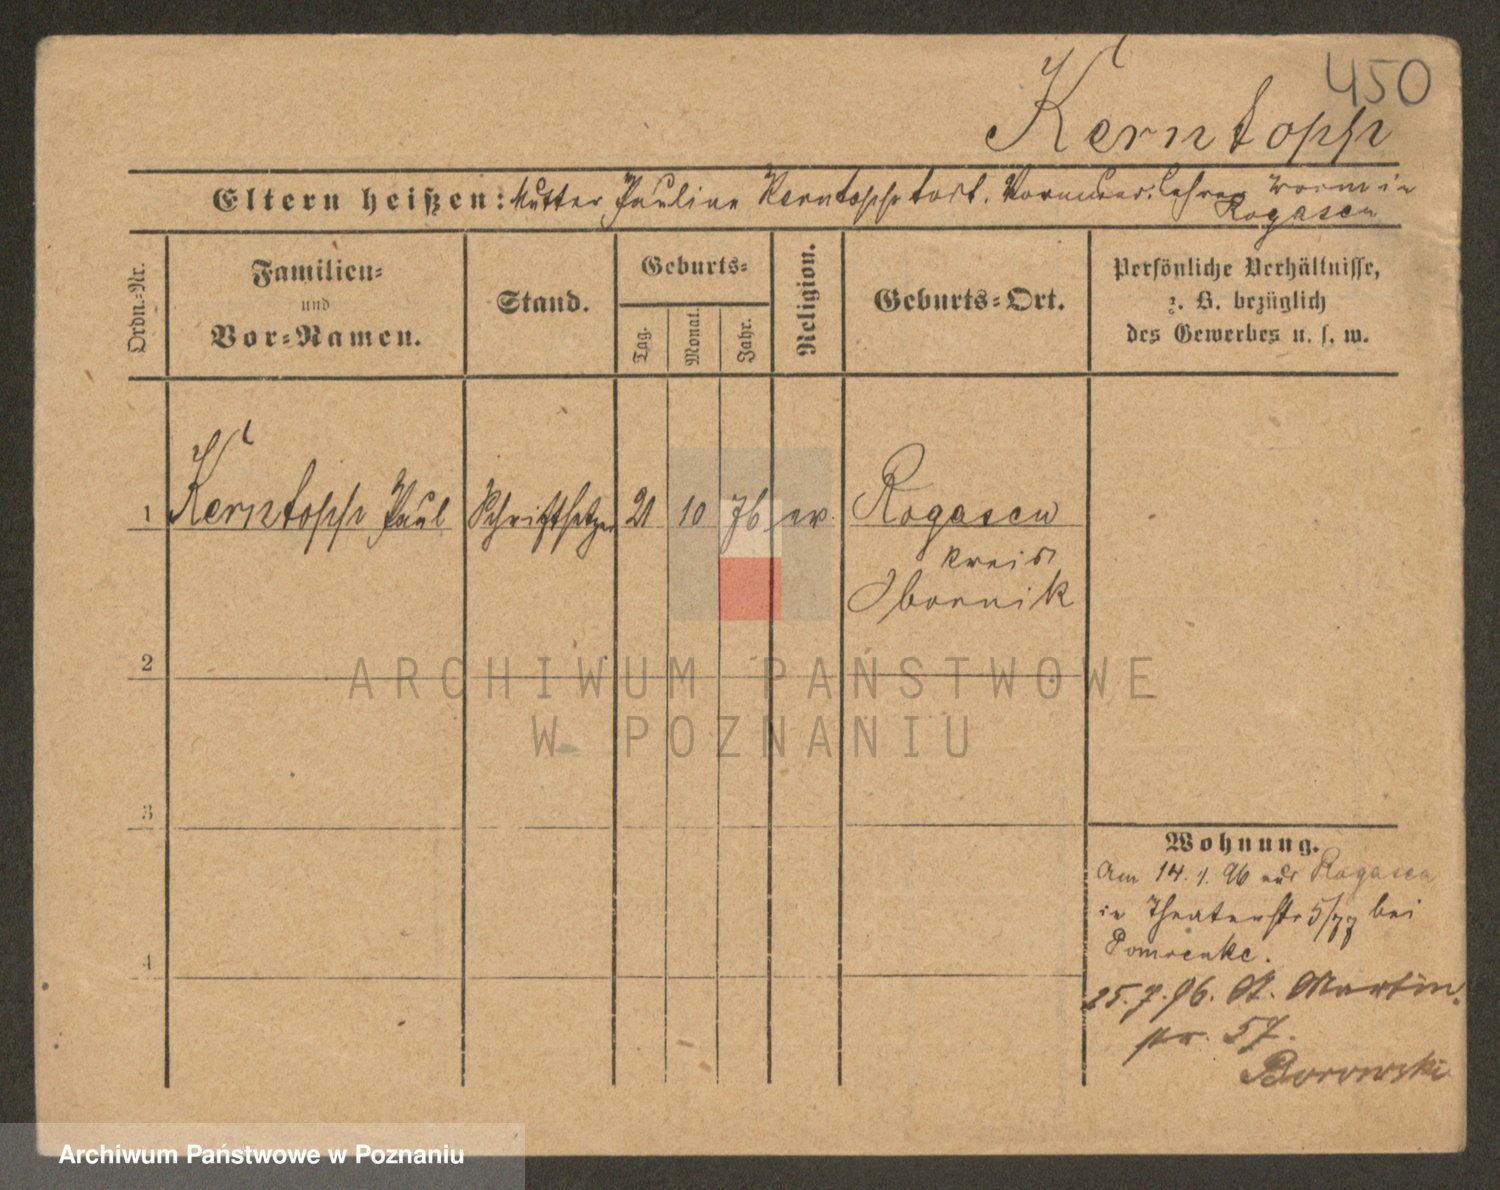 450
Kerntopf
Eltern heißen: Mutter Pauline Kerntopf todt. Lehrer Worm in
Rogasen
Ordn.-Nr.
Familien-
und
Vor-Namen.
Stand.
Geburts-
Tag.
Monat.
Jahr.
Religion.
Geburts-Ort.
Persönliche Verhältnisse,
z. B. bezüglich
des Gewerbes u. s. w.
1 Kerntopf Paul Schriftsetzer 21 10 76 ev. Rogasen
Kreis
Obornik
2
3
4
ARCHIWUM PAŃSTWOWE
W POZNANIU
Wohnung.
Am 14. 1. 96 aus Rogasen
in Theaterstr 5/77 bei
25. 7. 96. St. Martin.
57.
Borowski
Archiwum Państwowe w Poznaniu